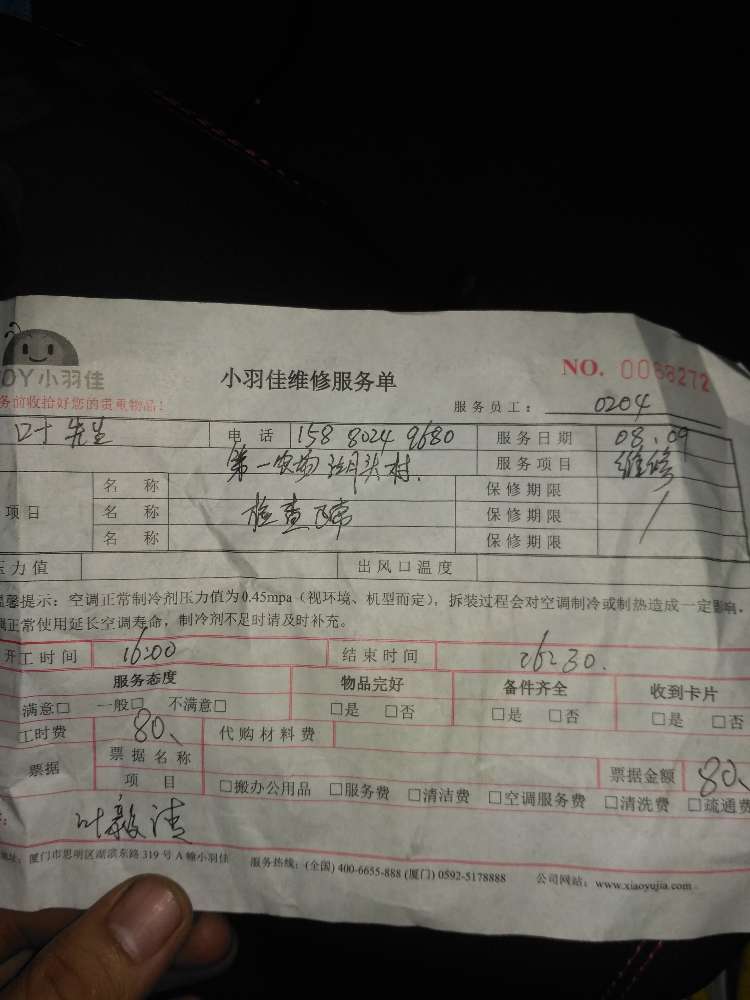 OY小羽佳
小羽佳维修服务单
NO. 0068272
务前收拾好您的贵重物品!
服务员工: 0204
叶先生 电话 158 8024 9680 服务日期 08.09
第一农场 头村. 服务项目 维修
名称 保修期限
项目 名称 检查 保修期限
名称 保修期限
压力值 出风口温度
温馨提示:空调正常制冷剂压力值为0.45mpa(视环境、机型而定),拆装过程会对空调制冷或制热造成一定影响,
正常使用延长空调寿命,制冷剂不足时请及时补充。
开工时间 16:00 结束时间 16:30.
服务态度 物品完好 备件齐全 收到卡片
满意□ 一般□ 不满意□ □是 □否 □是 □否 □是 □否
工时费 80、 代购材料费
票据 票据名称 票据金额 80、
项目 □搬办公用品 □服务费 □清洁费 □空调服务费 □清洗费 □疏通费
叶毅清
地址:厦门市思明区湖滨东路319号A幢小羽佳 服务热线:(全国)400-6655-888(厦门)0592-5178888 公司网站:www.xiaoyujia.com